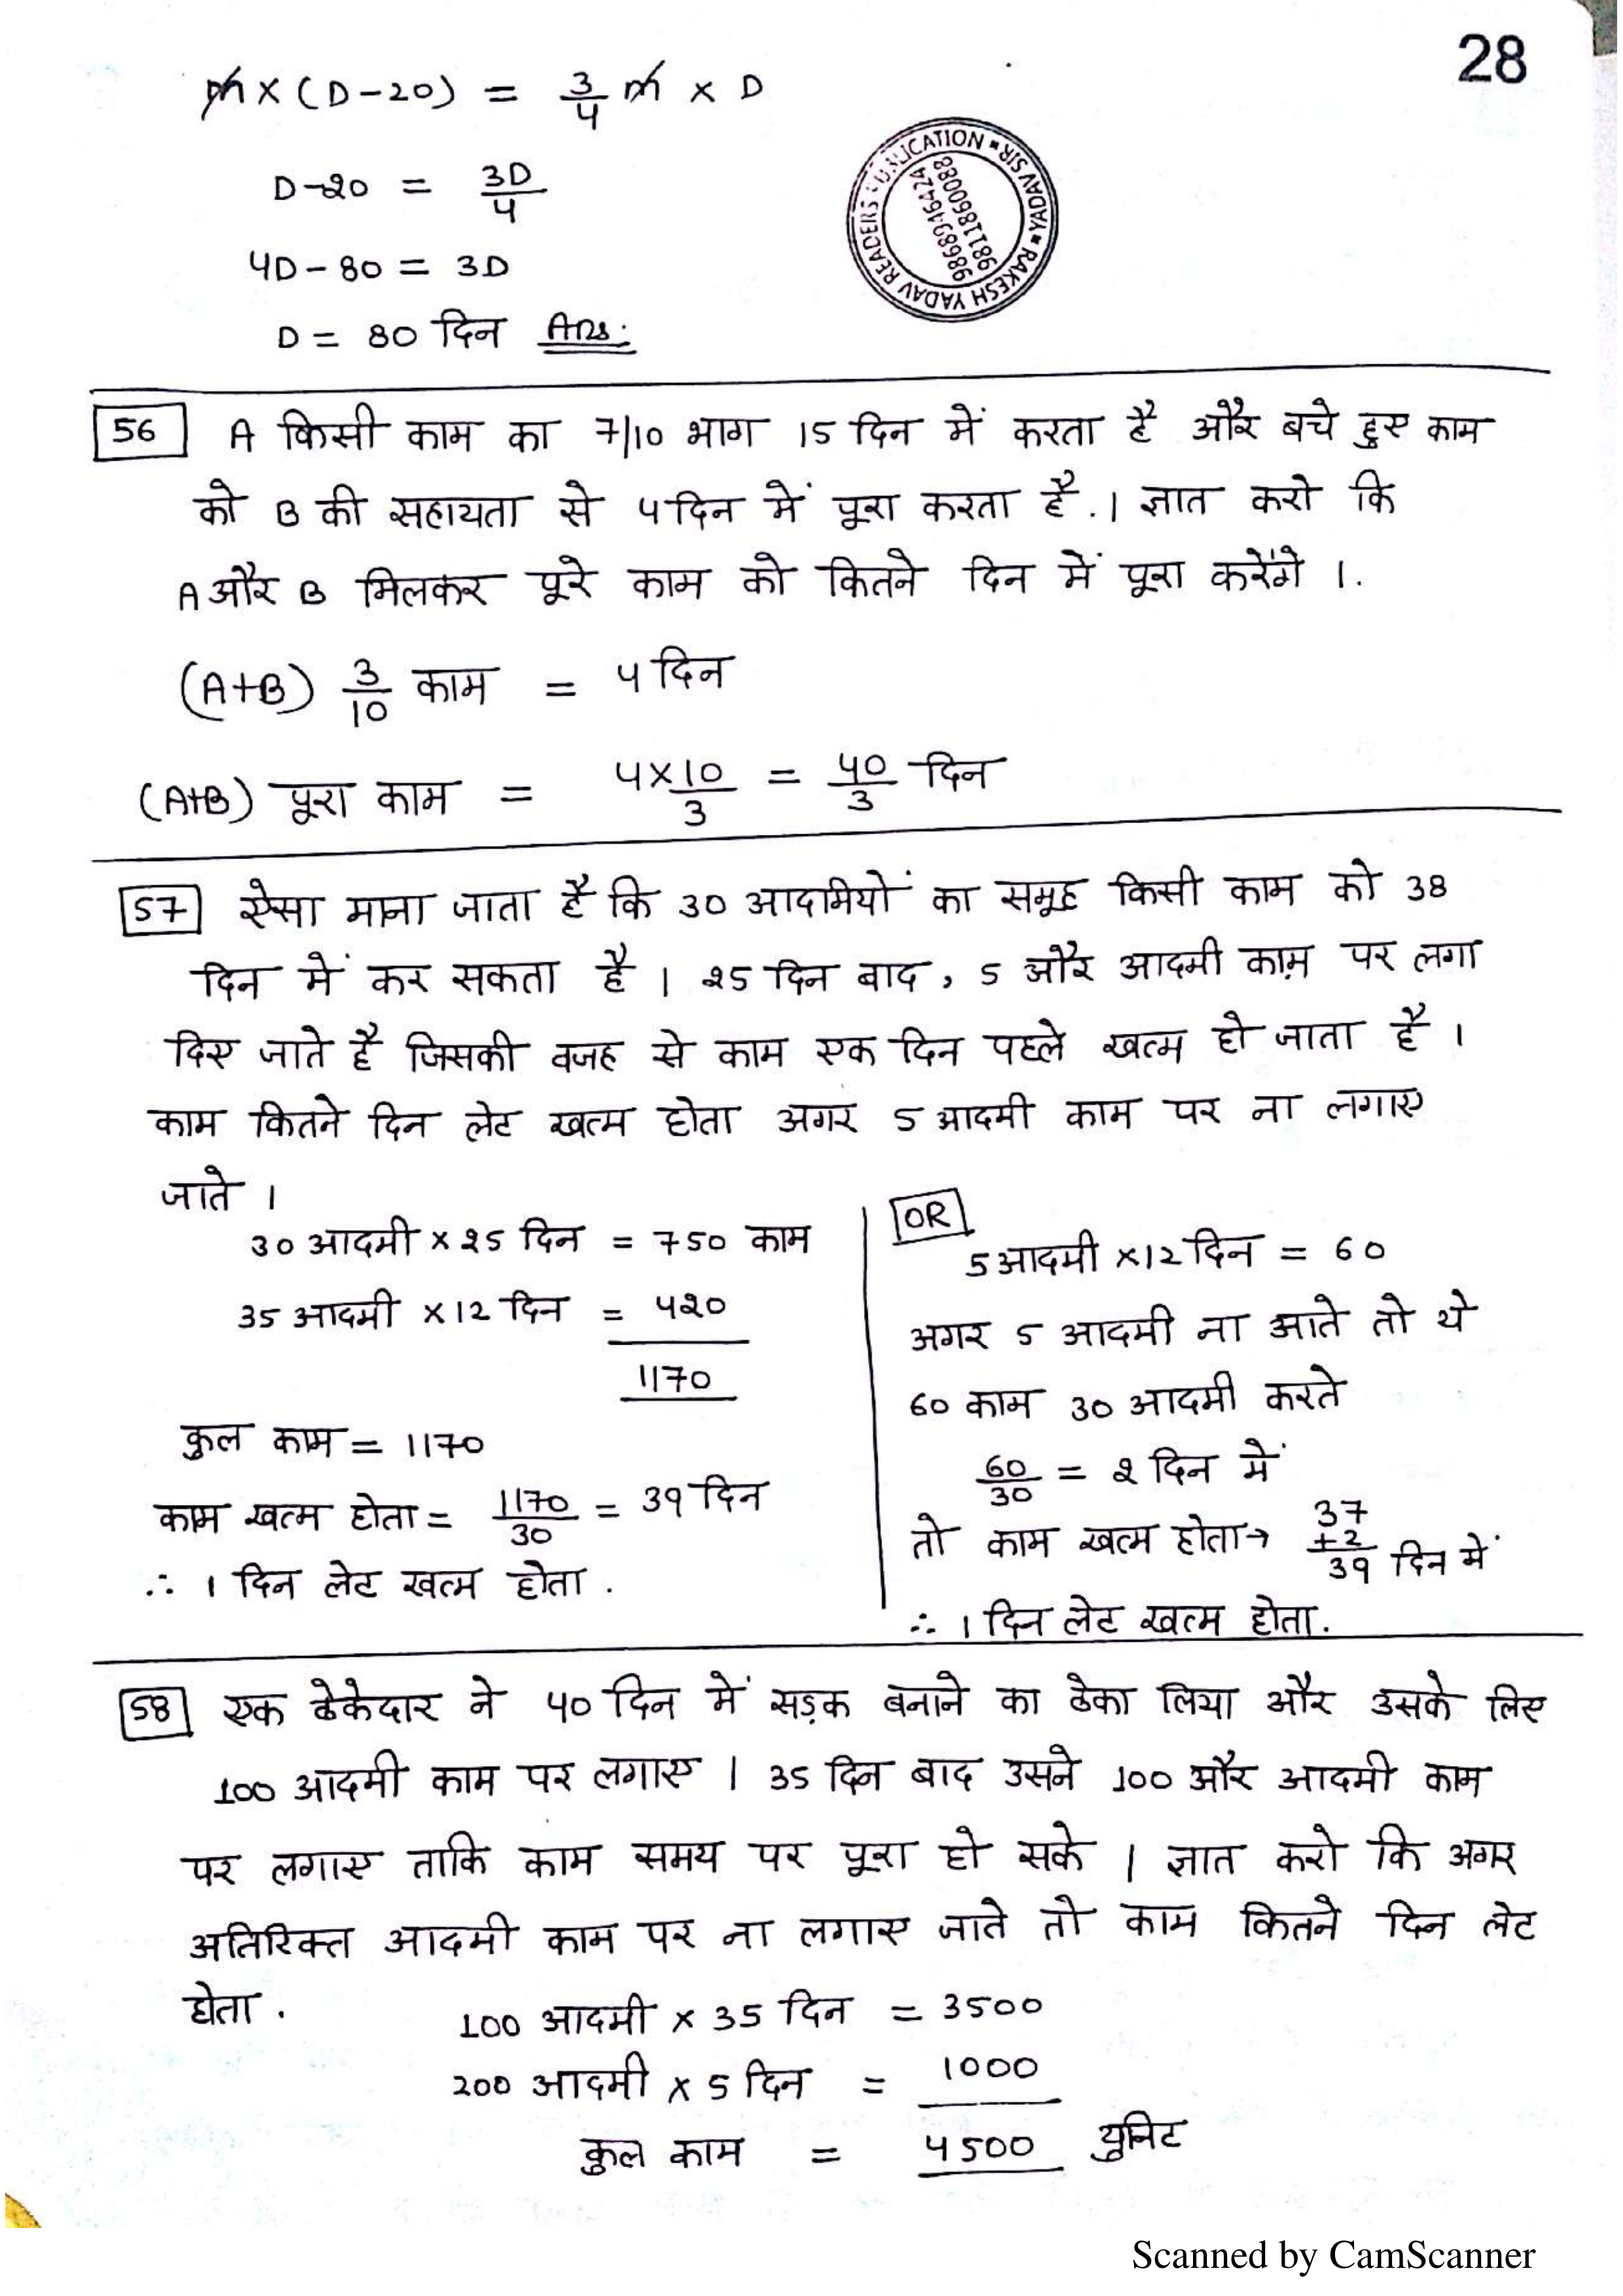 28
m × (D-20) = 3/4 m × D
D-20 = 3D/4
4D-80 = 3D
D = 80 दिन Ans.
YADAV READERS PUBLICATION * RAKESH YADAV SIR *
9868946424
9811860088
56 A किसी काम का 7/10 भाग 15 दिन में करता है और बचे हुए काम
को B की सहायता से 4 दिन में पूरा करता है. । ज्ञात करो कि
A और B मिलकर पूरे काम को कितने दिन में पूरा करेंगे ।.
(A+B) 3/10 काम = 4 दिन
(A+B) पूरा काम = 4×10/3 = 40/3 दिन
57 ऐसा माना जाता है कि 30 आदमियों का समूह किसी काम को 38
दिन में कर सकता है । 25 दिन बाद, 5 और आदमी काम पर लगा
दिए जाते है जिसकी वजह से काम एक दिन पहले खत्म हो जाता है ।
काम कितने दिन लेट खत्म होता अगर 5 आदमी काम पर ना लगाए
जाते ।
30 आदमी × 25 दिन = 750 काम
35 आदमी × 12 दिन = 420
1170
कुल काम = 1170
काम खत्म होता = 1170/30 = 39 दिन
∴ 1 दिन लेट खत्म होता .
OR
5 आदमी × 12 दिन = 60
अगर 5 आदमी ना आते तो ये
60 काम 30 आदमी करते
60/30 = 2 दिन में
तो काम खत्म होता → 37 +2 39 दिन में
∴ 1 दिन लेट खत्म होता.
58 एक ठेकेदार ने 40 दिन में सड़क बनाने का ठेका लिया और उसके लिए
100 आदमी काम पर लगाए । 35 दिन बाद उसने 100 और आदमी काम
पर लगाए ताकि काम समय पर पूरा हो सके । ज्ञात करो कि अगर
अतिरिक्त आदमी काम पर ना लगाए जाते तो काम कितने दिन लेट
होता .
100 आदमी × 35 दिन = 3500
200 आदमी × 5 दिन = 1000
कुल काम = 4500 युनिट
Scanned by CamScanner